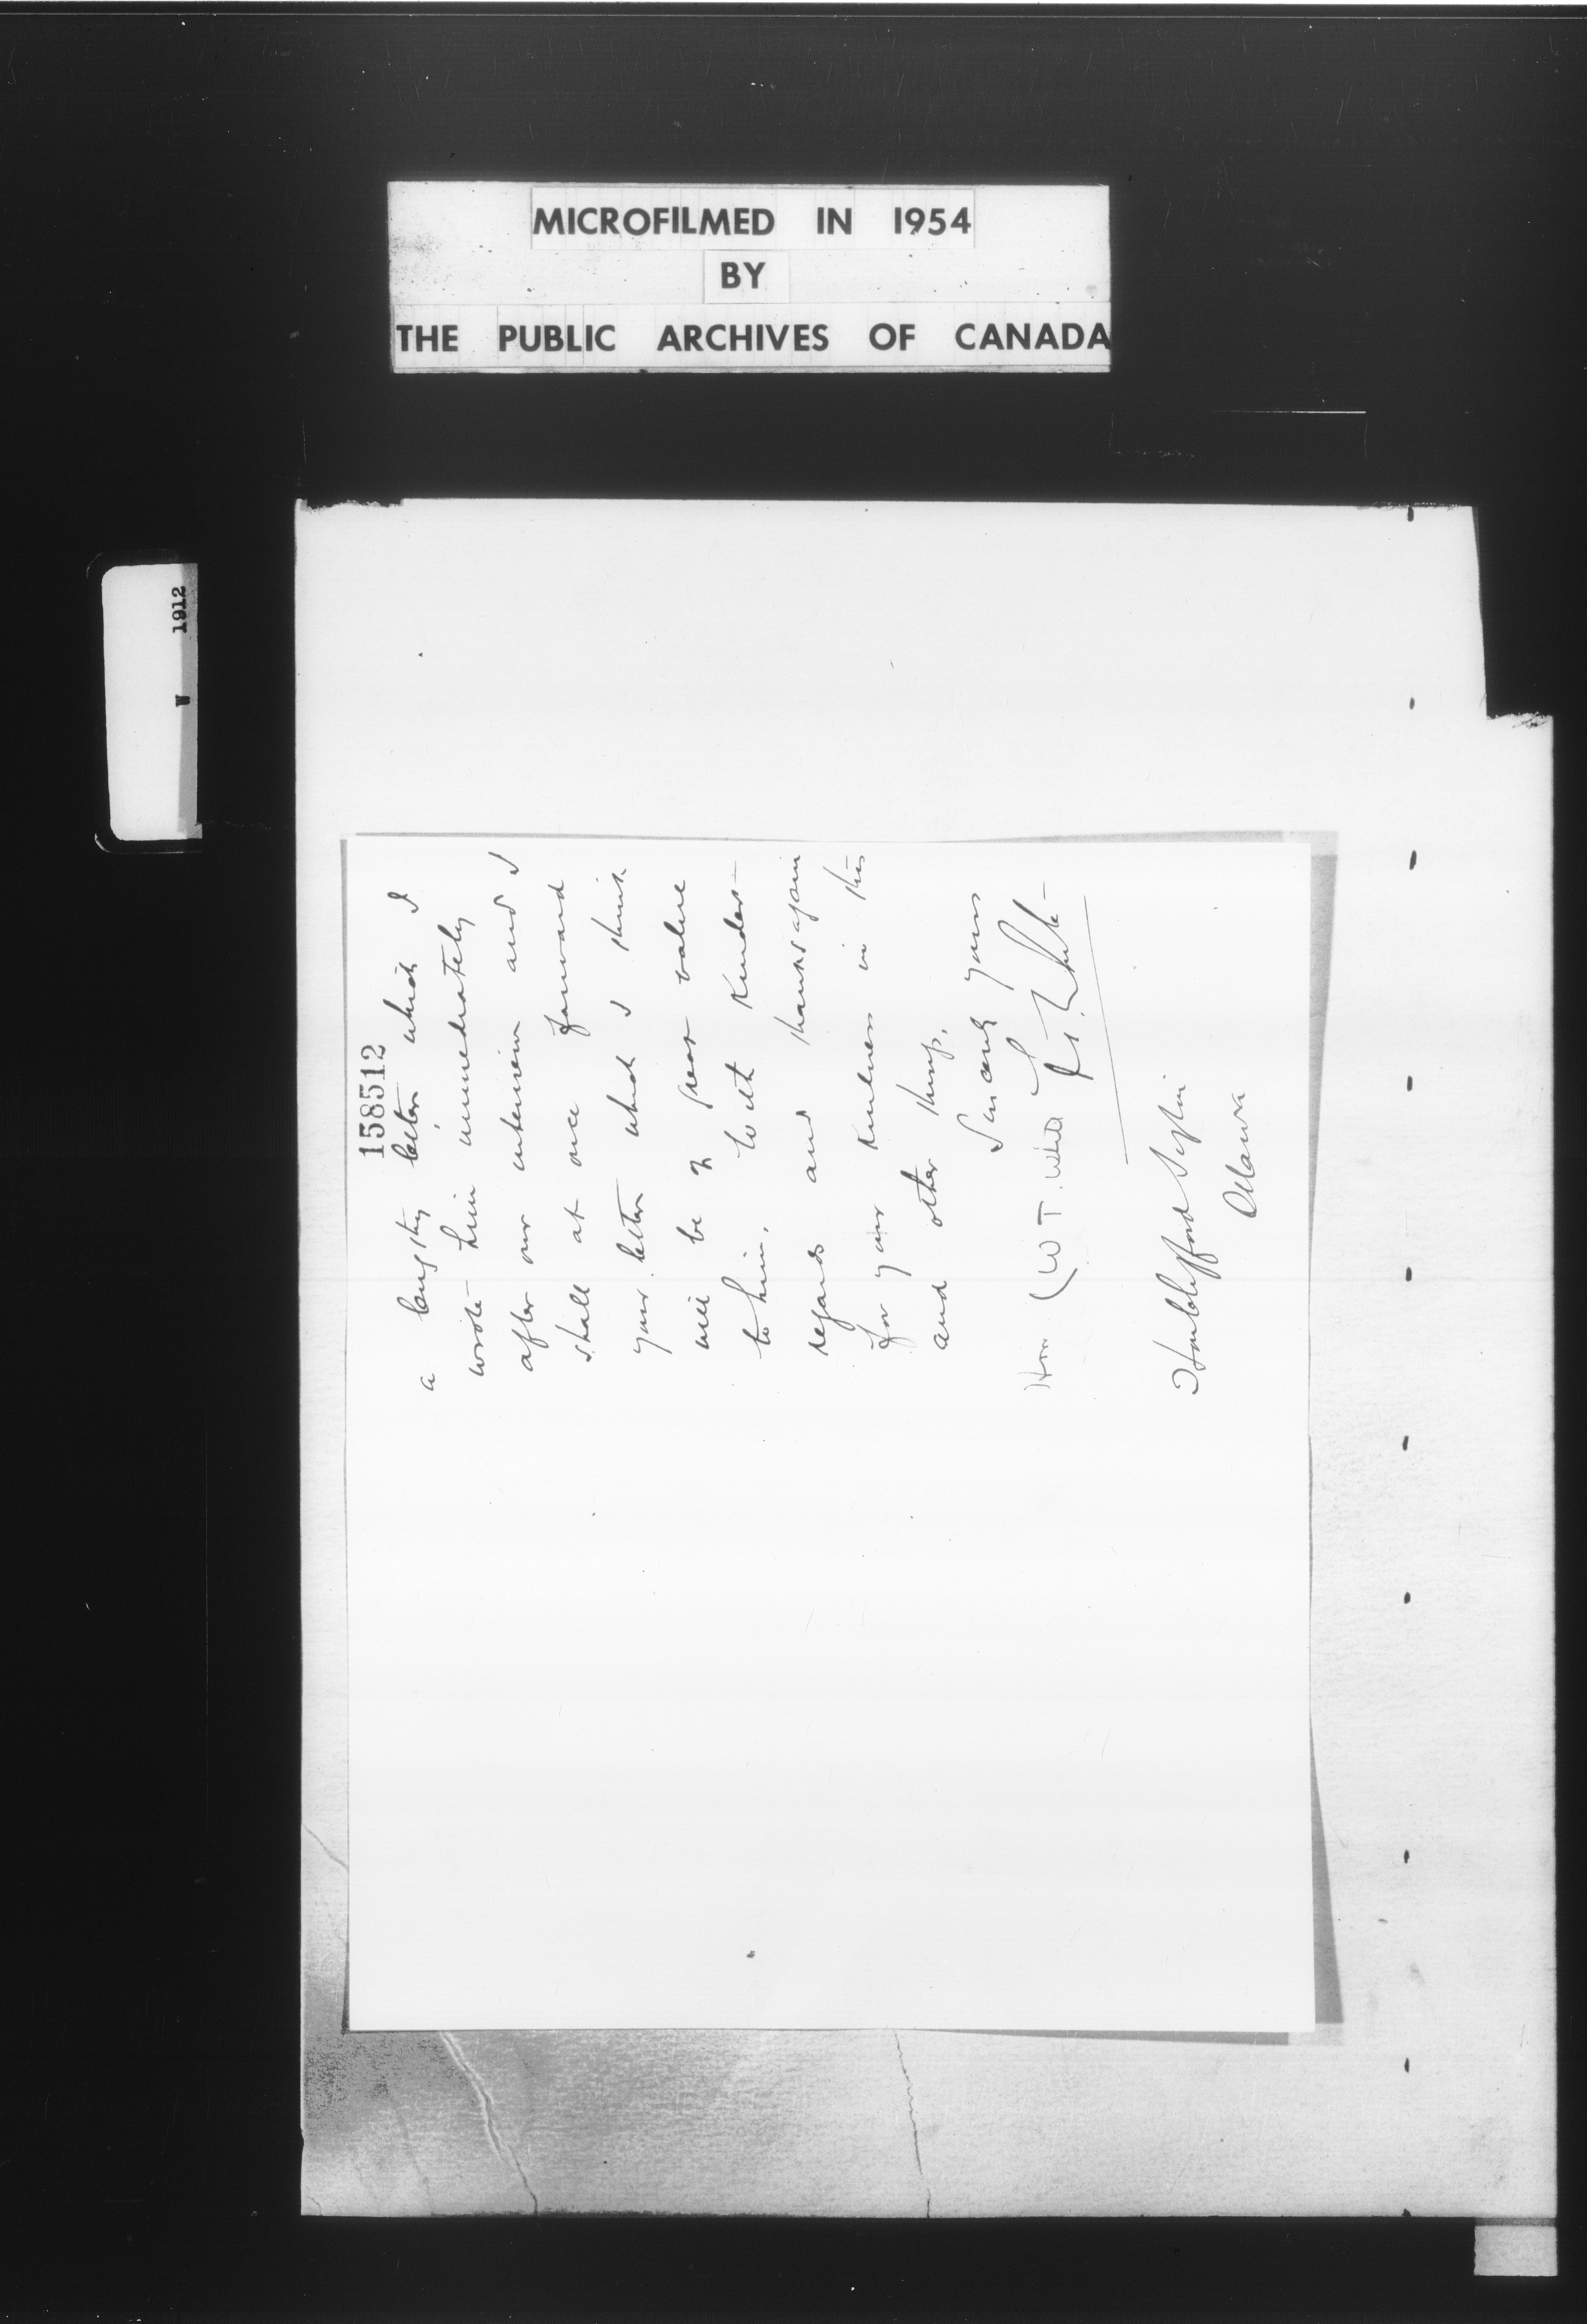 MICROFILMED IN 1954
BY
THE PUBLIC ARCHIVES OF CANADA
W 1912
158512
a lengthy letter which I
wrote him immediately
after our interview and I
shall at once forward
your letter which I think
will be of great value
to him. With kindest
regards and thanks again
for your kindness in this
and other things.
Sincerely yours
W. T. White
Hon (W T. White
Hon Clifford Sifton
Ottawa